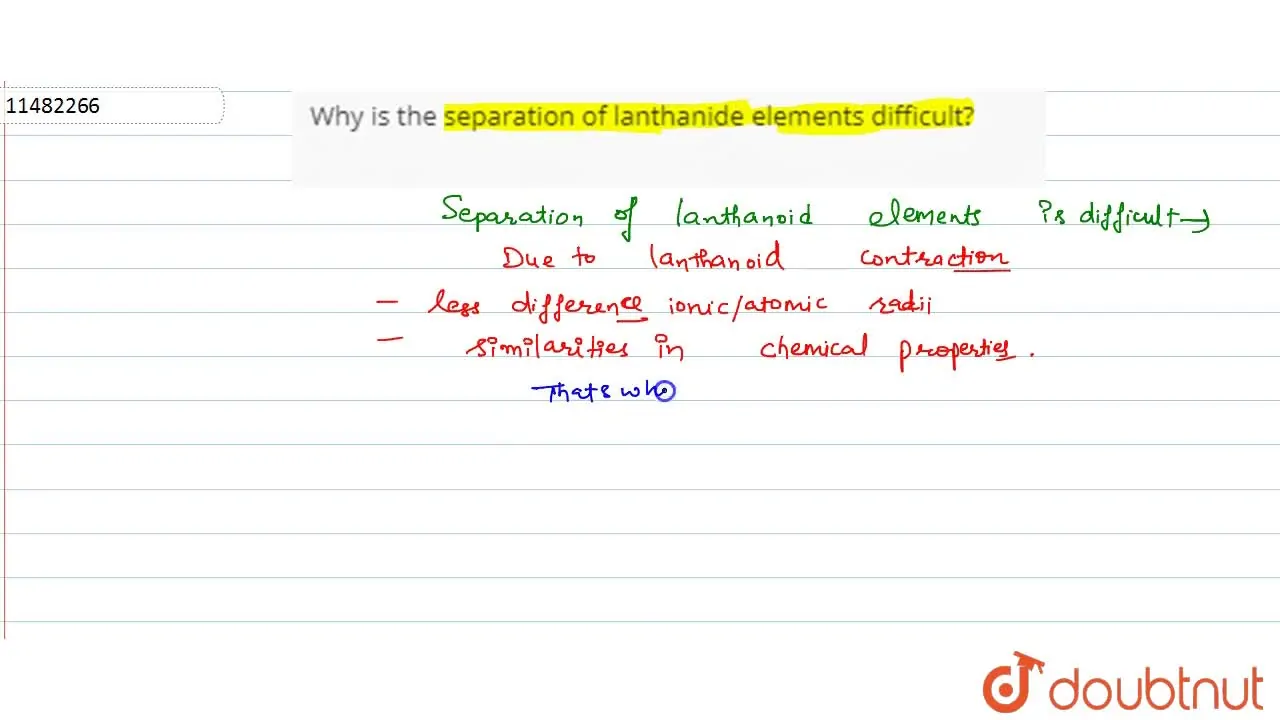 11482266
Why is the separation of lanthanide elements difficult?
Separation of lanthanoid elements is difficult →
Due to lanthanoid contraction
- less difference ionic/atomic radii
- similarities in chemical properties.
Thats who
doubtnut